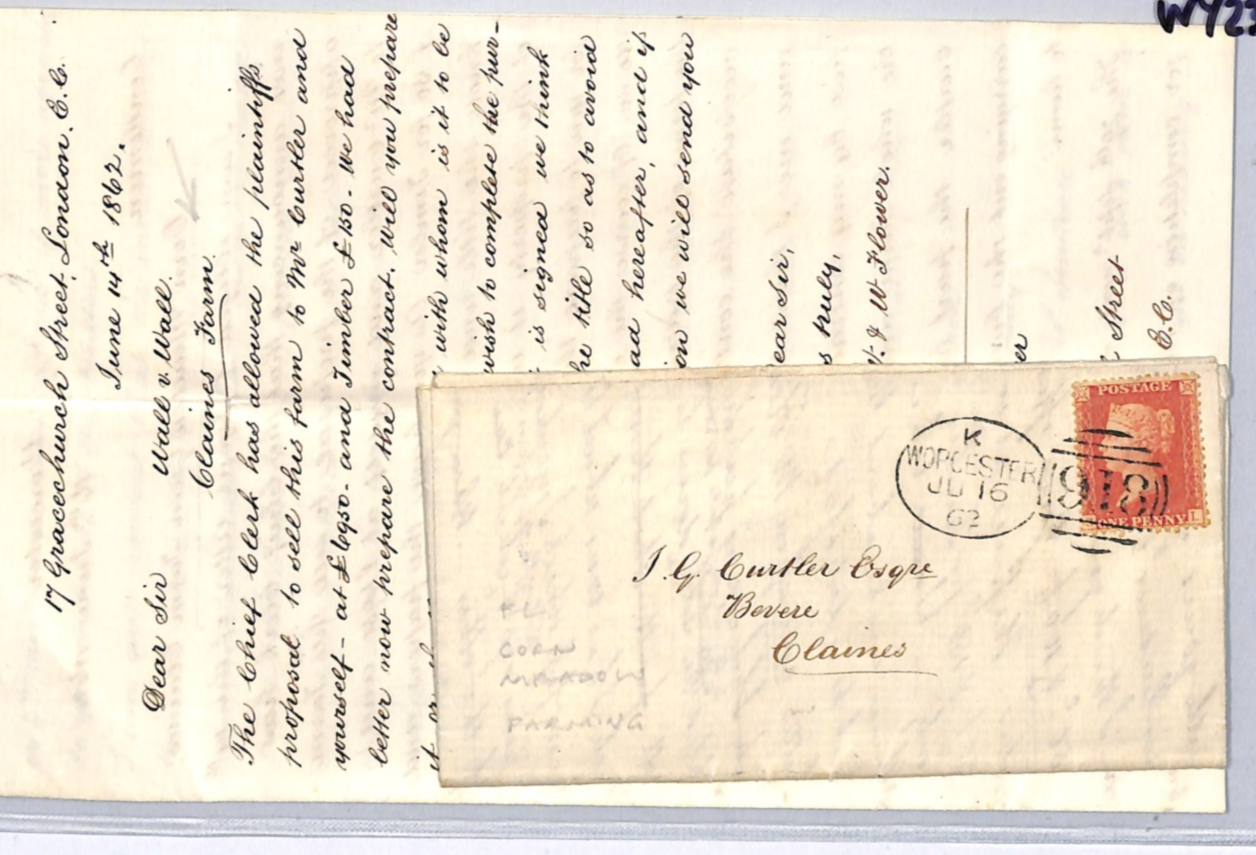 17 Gracechurch Street. London. E.C.
June 14th 1862.
Dear Sir
Wall v. Wall.
Claines Farm
The Chief Clerk has allowed the plaintiffs
proposal to sell this farm to Mr Curtler and
yourself - at £6950 - and Timber £150 - We had
better now prepare the contract. Will you prepare
with whom is it to be
wish to complete the pur-
is signed we think
he title so as to avoid
ad hereafter, and if
on we will send you
ear Sir,
s truly,
& W Flower.
er
Street
E.C.
WY23
POSTAGE
ONE PENNY
L
918
K
WORCESTER
JU 16
62
J. G. Curtler Esqre
Bevere
Claines
CORN
MEADOW
FARMING